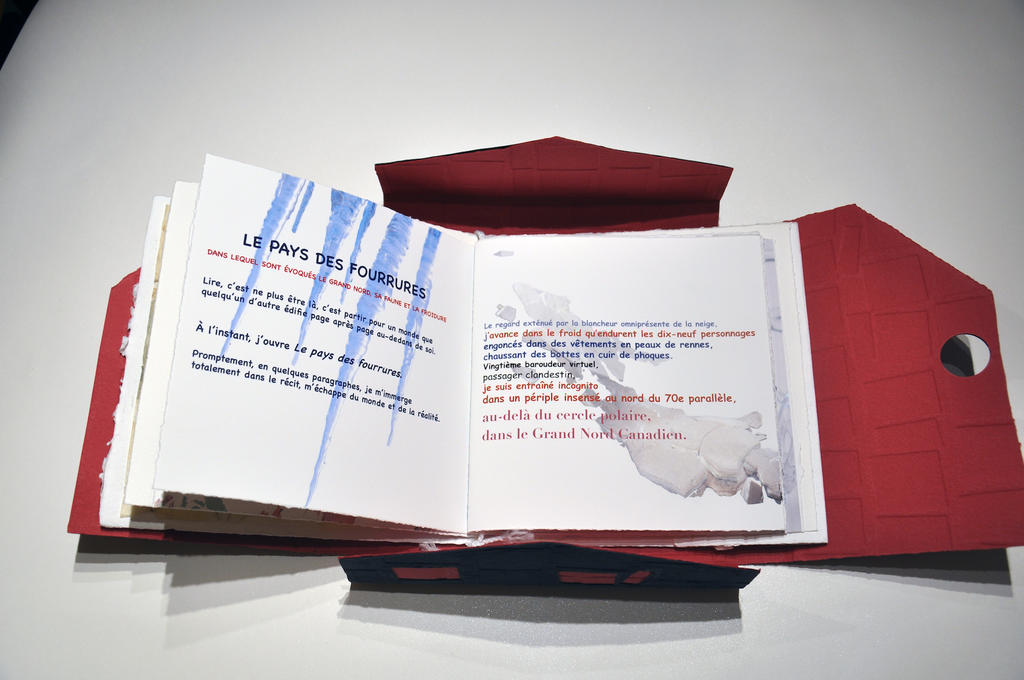 LE PAYS DES FOURRURES
DANS LEQUEL SONT ÉVOQUÉS LE GRAND NORD, SA FAUNE ET LA FROIDURE
Lire, c'est ne plus être là, c'est partir pour un monde que
quelqu'un d'autre édifie page après page au-dedans de soi.
À l'instant, j'ouvre Le pays des fourrures.
Promptement, en quelques paragraphes, je m'immerge
totalement dans le récit, m'échappe du monde et de la réalité.
Le regard exténué par la blancheur omniprésente de la neige,
j'avance dans le froid qu'endurent les dix-neuf personnages
engoncés dans des vêtements en peaux de rennes,
chaussant des bottes en cuir de phoques.
Vingtième baroudeur virtuel,
passager clandestin,
je suis entraîné incognito
dans un périple insensé au nord du 70e parallèle,
au-delà du cercle polaire,
dans le Grand Nord Canadien.